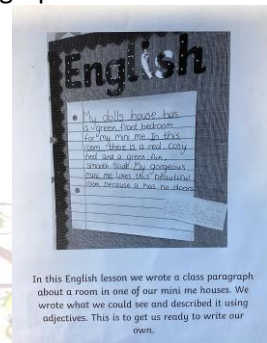 English
My dolls house has
a green, front bedroom
for my mini me. In this
room there is a red, cosy
bed and a green, fun,
smooth slide. My gorgeous
mini me likes this beautiful
room because it has no door
In this English lesson we wrote a class paragraph
about a room in one of our mini me houses. We
wrote what we could see and described it using
adjectives. This is to get us ready to write our
own.